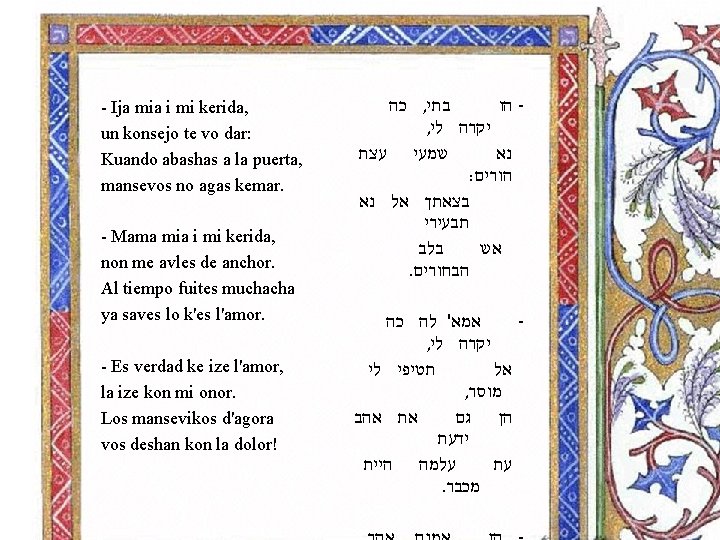 - Ija mia i mi kerida,
un konsejo te vo dar:
Kuando abashas a la puerta,
mansevos no agas kemar.
- Mama mia i mi kerida,
non me avles de anchor.
Al tiempo fuites muchacha
ya saves lo k'es l'amor.
- Es verdad ke ize l'amor,
la ize kon mi onor.
Los mansevikos d'agora
vos deshan kon la dolor!
- הו בתי, כה
יקרה לי,
נא שמעי עצת
הורים:
בצאתך אל נא
תבעירי
אש בלב
הבחורים.
- אמא' לה כה
יקרה לי,
אל תטיפי לי
מוסר,
הן גם את אהב
ידעת
עת עלמה היית
מכבר.